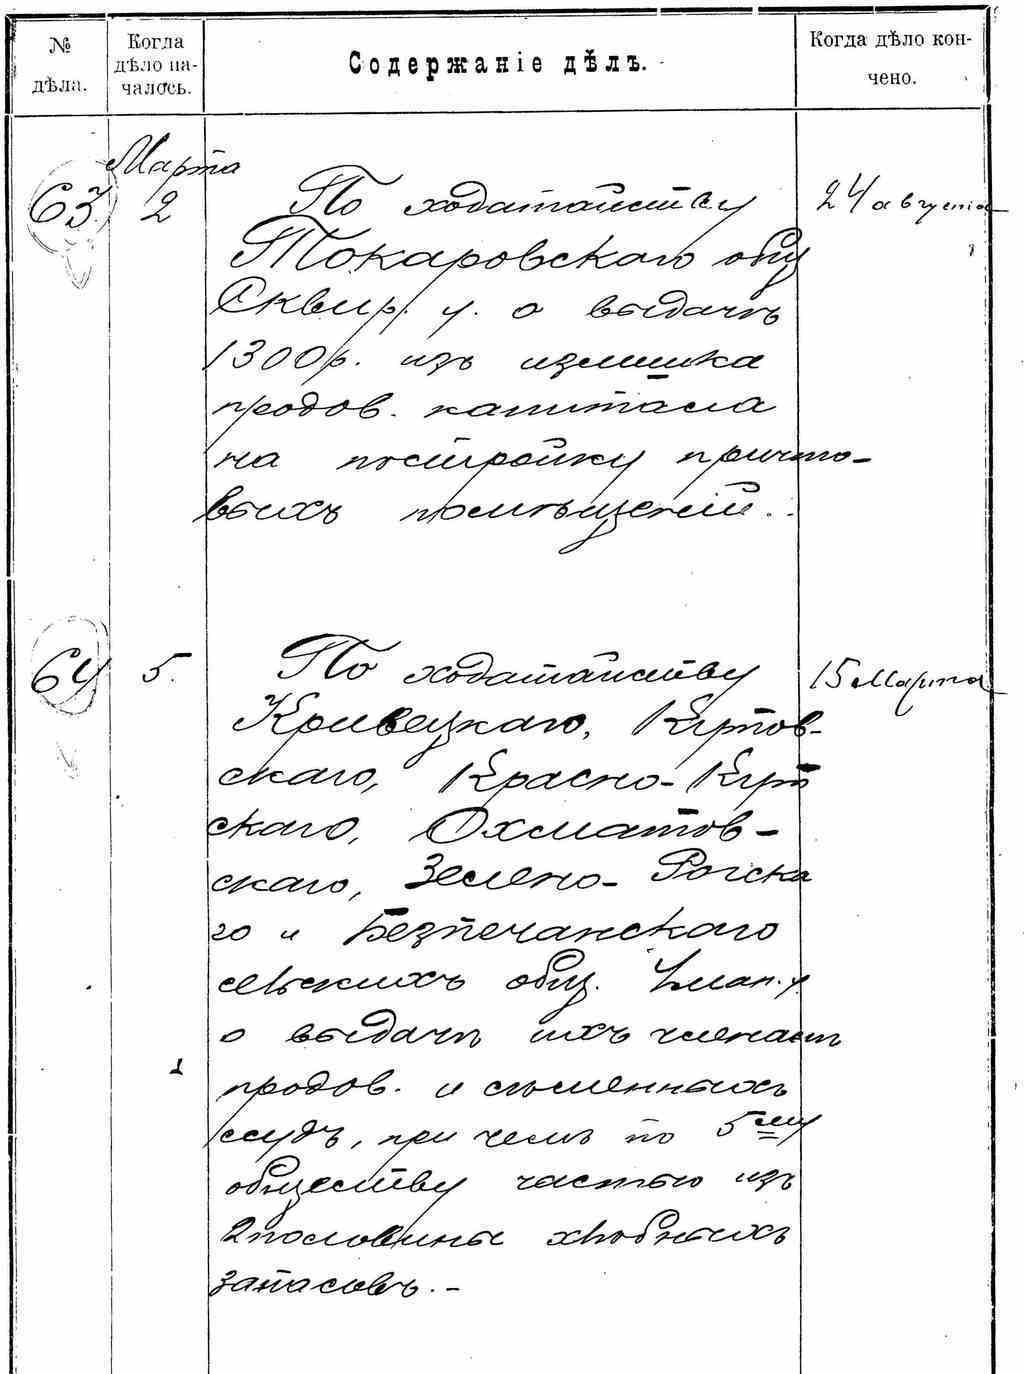 № дѣла.
Когда дѣло началось.
Содержаніе дѣлъ.
Когда дѣло кончено.
Марта
63 2 По ходатайству 24 августа
Токаровскаго общ
Сквир. у. о выдачѣ
1300 р. изъ излишка
продов. капитала
на постройку причто-
выхъ помѣщеній.
64 5. По ходатайству 15 Марта
Кривецкаго,
скаго, Красно-
скаго, Охматов-
скаго, Зелено-Рогска
го и Безпечанскаго
сельскихъ общ. Уман. у.
о выдачѣ ихъ членамъ
продов. и сѣменныхъ
ссудъ, при чемъ по 5му
обществу частью изъ
2 половины хлѣбныхъ
запасовъ.-